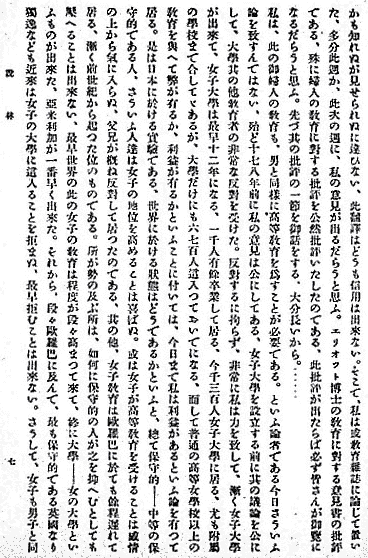 かも知れぬが見せられぬに違ひない、此飜譯はどうも信用は出來ない。そこで、私は或教育雜誌に論じて置い
た、多分此週か、此次の週に、私の意見が出るだらうと思ふ。エリオット博士の教育に對する意見書の批評
である、殊に婦人の教育に對する批評を公然批評いたしたのである、此批評が出たらば必ず皆さんが御覽に
なるだらうと思ふ。先づ其の批評の一節を御話をする、大分長いから。……
私は、此の御婦人の教育も、男と同樣に高等教育を爲すことが必要である、といふ論者である今日さういふ
論を致すんではない、殆ど十七八年前に私の意見は公にしてある、女子大學を設立する前に其の議論を公に
して、大學其の他教育者の非常な反對を受けた。反對するに拘らず、非常に私は力を致して、漸く女子大學
が出來て、女子大學は最早十二年になる、一千人有餘卒業して居る、今千三百人女子大學に居る、尤も附屬
の學校まで合してゞあるが、大學だけにも六七百人這入つておいでになる、而して普通の高等女學校以上の
教育を與へて弊が有るか、利益が有るかといふことに付いては、今日まで私は利益があるといふ論を有つて
居る。是は日本に於ける實驗である、世界に於ける狀態はどうであるかといふと、總て保守的――中等の保
守的である人、さういふ人達は女子の地位を高めることは喜ばぬ。或は女子が高等教育を受けることは感情
の上から氣に入らぬ、父兄が概ね反對して居つたのである、其の他、女子教育は歐羅巴に於ても餘程遲れて
居る、漸く前世紀から起つた位のものである。所が勢の及ぶ所は、如何に保守的の人が之を抑へんとしても
壓へることは出來ない、最早世界の此の女子の教育は程度が段々高まつて來て、終に大學――女の大學とい
ふものが出來た、亞米利加が一番早く出來た。それから、段々歐羅巴に及んで、最も保守的である英國なり
獨逸なども近來は女子の大學に這入ることを拒まぬ、最早拒むことは出來ない。さうして、女子も男子と同
說林
七